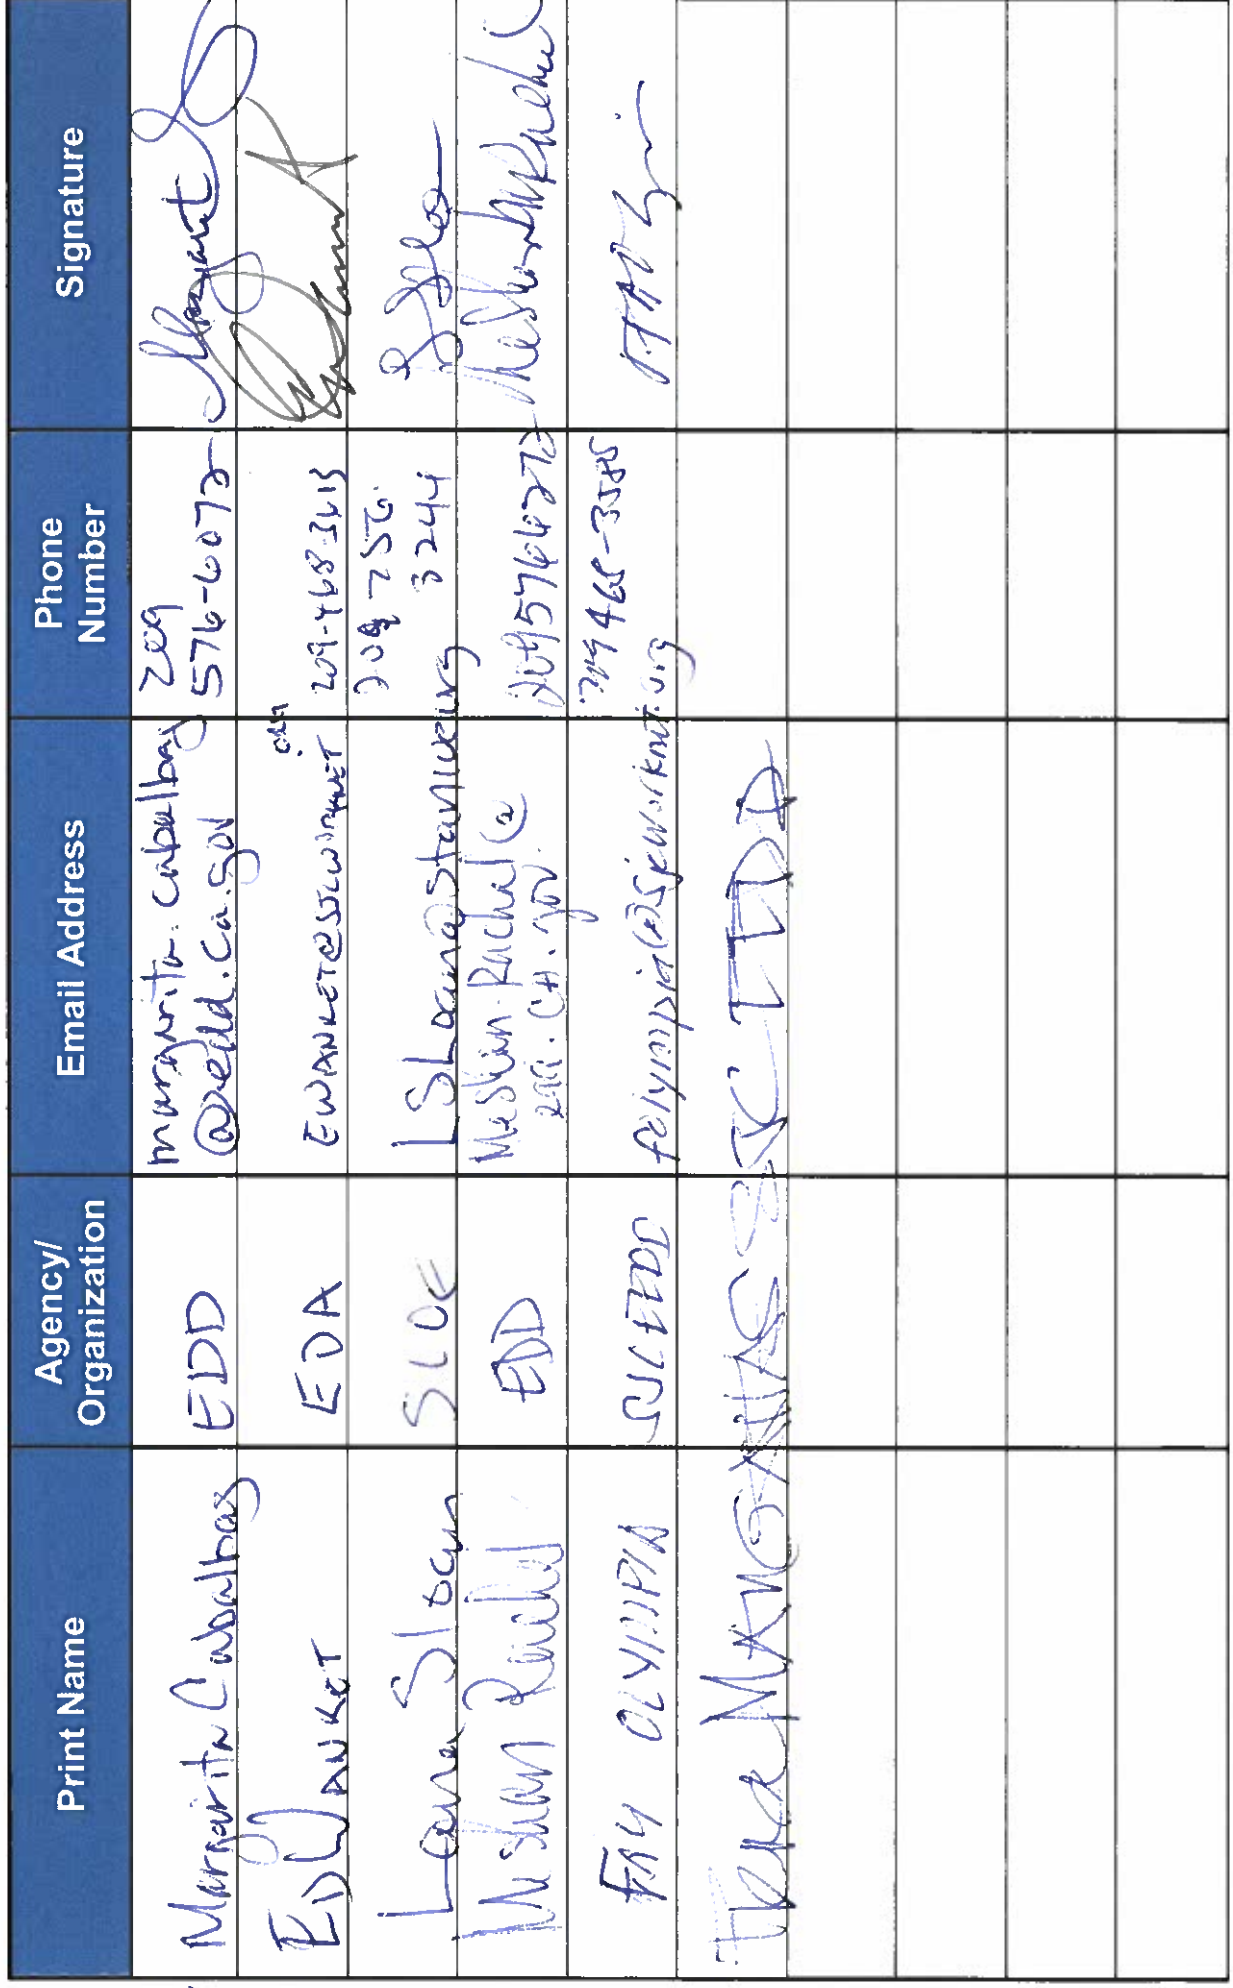 Print Name
Agency/
Organization
Email Address
Phone
Number
Signature
Margarita Cabalbag
EDD
margarita.cabalbag
@edd.ca.gov
209
576-6072
ED WANKET
EDA
EWANKET@SJCWORKNET
.ORG
209-468-3613
Lana Sloan
SCOE
LSloan@stancoe.org
209 756
3244
Meshan Rachal
EDD
Meshan.Rachal@
edd.ca.gov
2095766272
FAY OLYMPIA
SJCEDD
folympia@sjcworknet.org
209 468-3585
SJC EDD